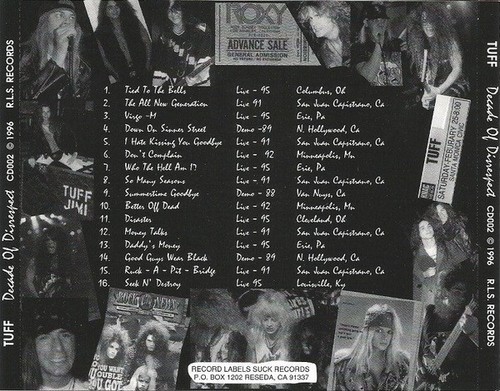 TUFF Decade Of Disrespect CD002 © 1996 R.L.S. RECORDS
ROXY
ADVANCE SALE
GENERAL ADMISSION
1. Tied To The Bells Live - 95 Columbus, Oh
2. The All New Generation Live 91 San Juan Capistrano, Ca
3. Virgo -M Live - 95 Erie, Pa
4. Down On Sinner Street Demo -89 N. Hollywood, Ca
5. I Hate Kissing You Goodbye Live - 91 San Juan Capistrano, Ca
6. Don't Complain Live - 92 Minneapolis, Mn
7. Who The Hell Am I? Live - 95 Erie, Pa
8. So Many Seasons Live - 91 San Juan Capistrano, Ca
9. Summertime Goodbye Demo - 88 Van Nuys, Ca
10. Better Off Dead Live - 92 Minneapolis, Mn
11. Disaster Live - 95 Cleveland, Oh
12. Money Talks Live - 91 San Juan Capistrano, Ca
13. Daddy's Money Live - 95 Erie, Pa
14. Good Guys Wear Black Demo - 89 N. Hollywood, Ca
15. Ruck - A - Pit - Bridge Live - 91 San Juan Capistrano, Ca
16. Seek N' Destroy Live 95 Louisville, Ky
TUFF
JIMI
TUFF
SATURDAY FEBRUARY 25-8:00
SANTA MONICA CIVIC
RECORD LABELS SUCK RECORDS
P.O. BOX 1202 RESEDA, CA 91337
TUFF Decade Of Disrespect CD002 © 1996 R.L.S. RECORDS